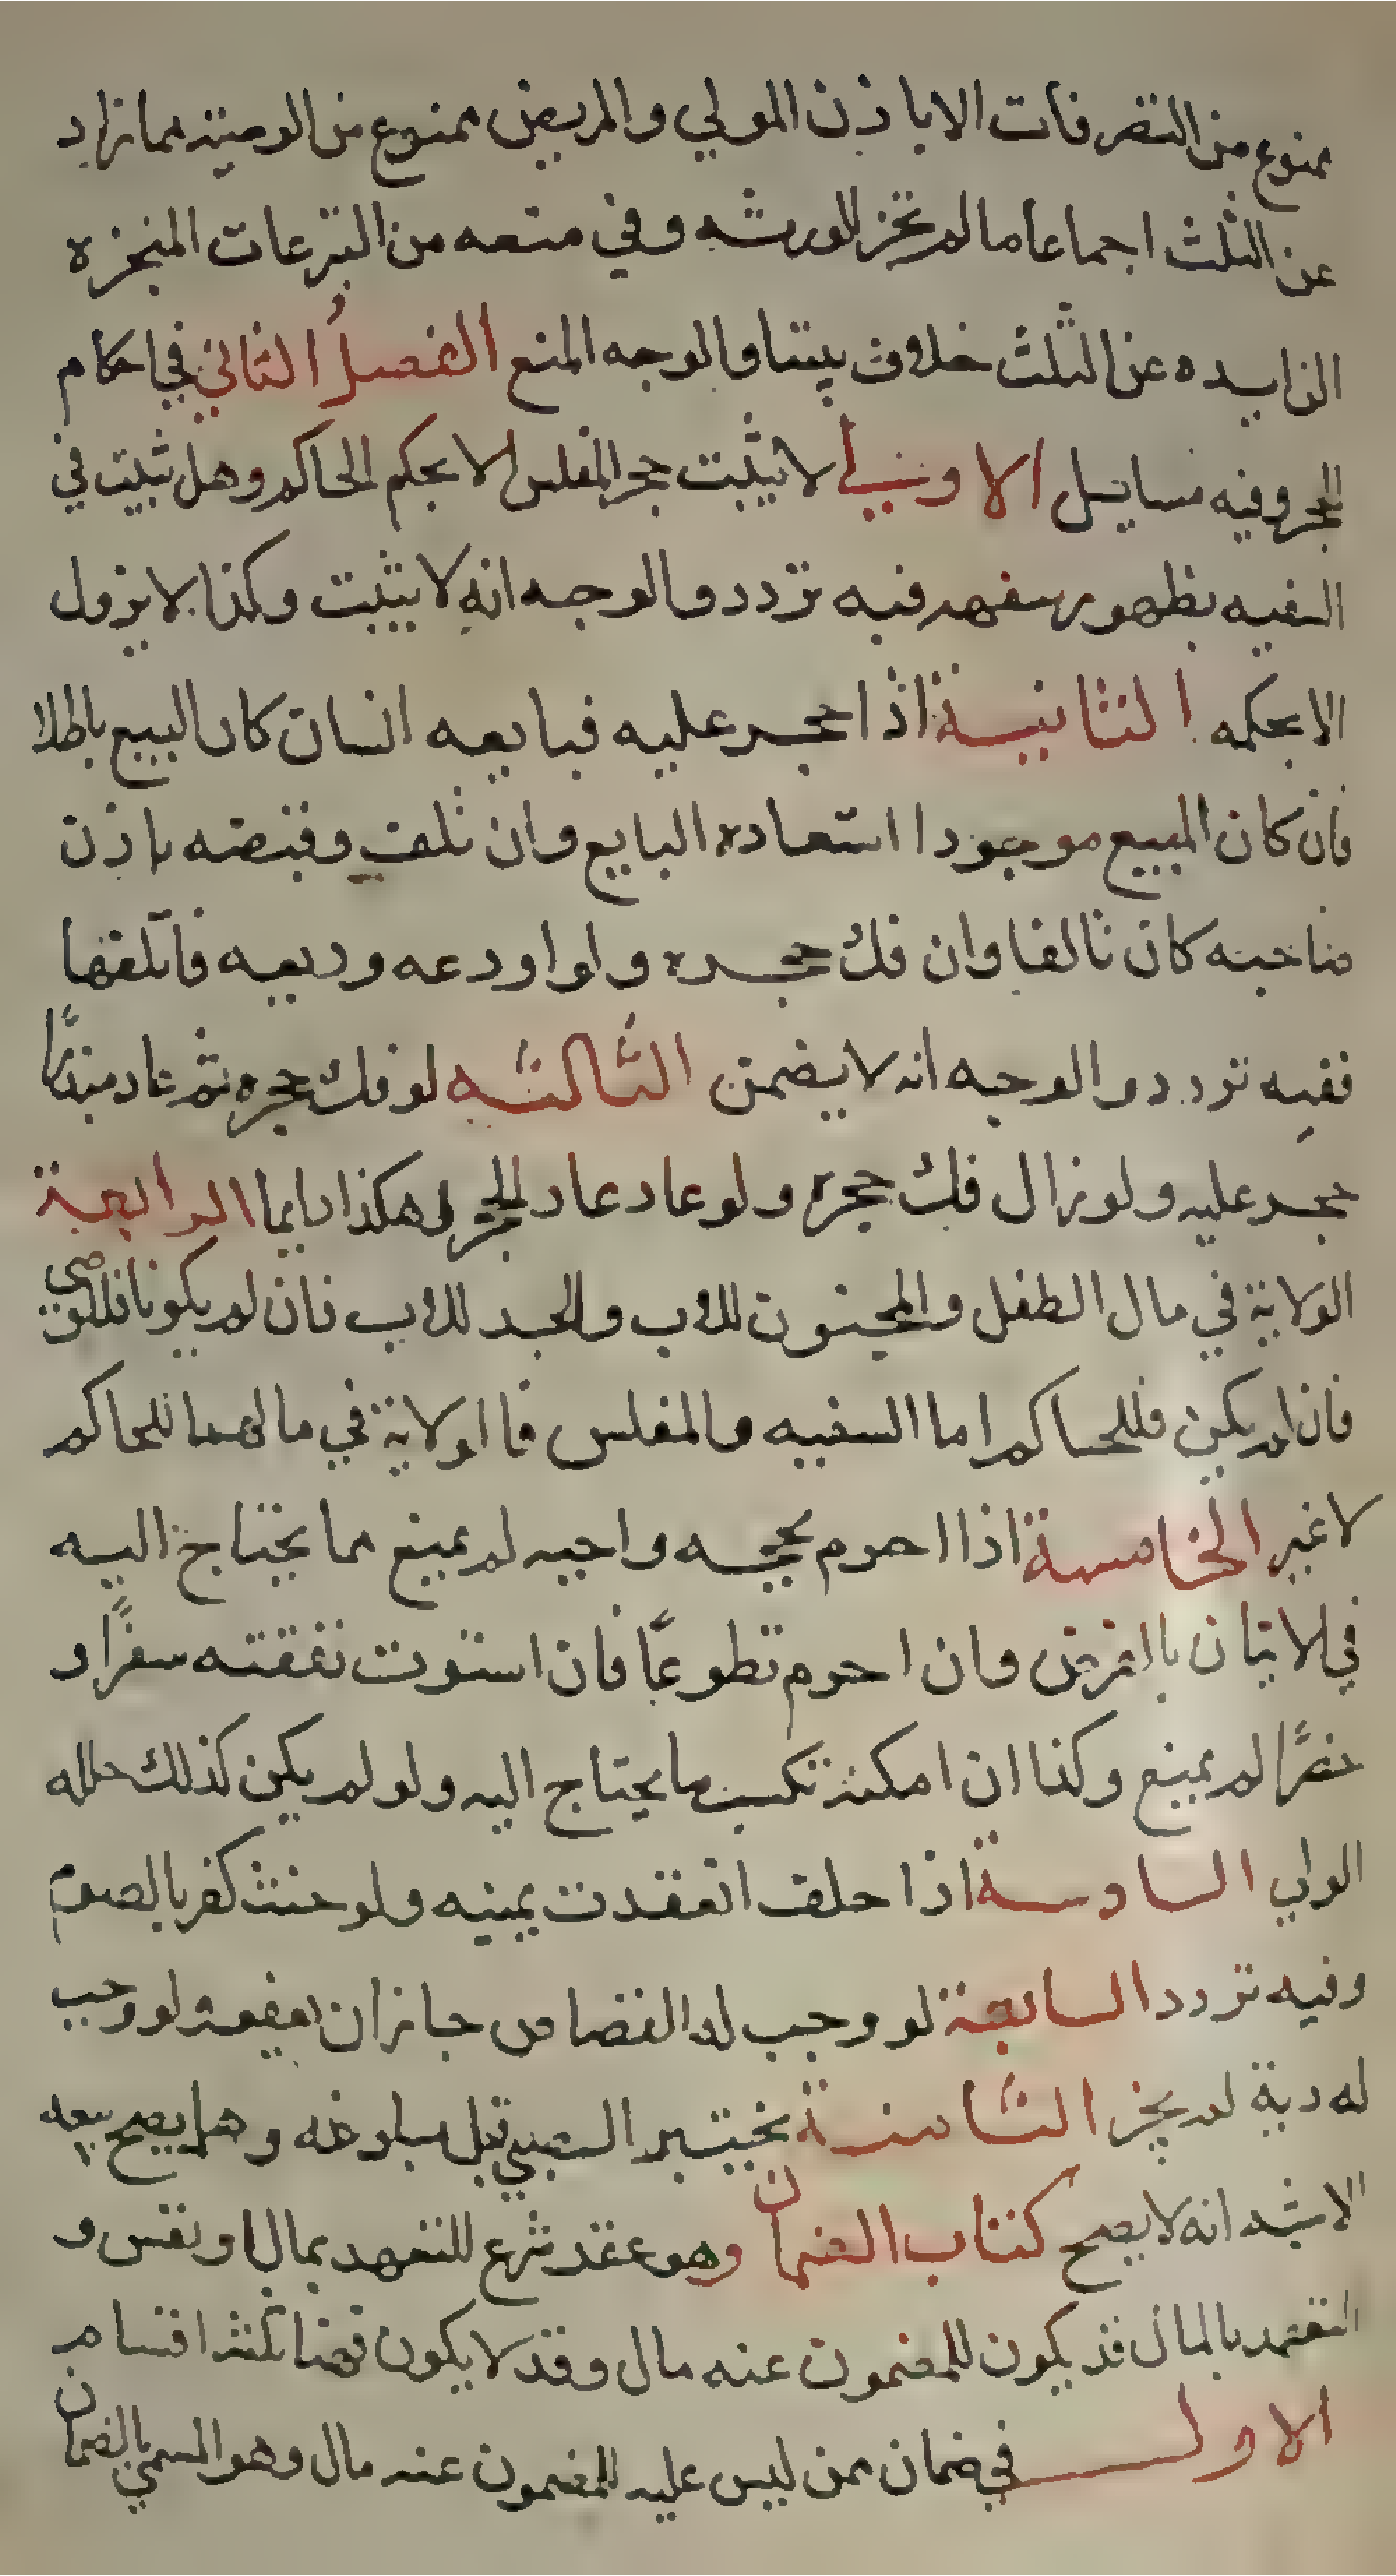 ممنوع من التصرفات الا باذن المولي والمريض ممنوع من الوصية مما زاد
عن الثلث اجماعا ما لم تجز الورثه وفي منعه من التبرعات المنجزه
الزايده عن الثلث خلاف بيننا والوجه المنع الفصل الثاني في احكام
الحجر وفيه مسايل الاولي لا يثبت حجر المفلس الا بحكم الحاكم وهل تثبت في
السفيه بظهور سفهه فيه تردد والوجه انه لا يثبت وكذا لا يزول
الا بحكمه الثانية اذا حجر عليه فبايعه انسان كان البيع باطلا
فان كان المبيع موجودا استعاده البايع وان تلف وقبضه باذن
صاحبه كان تالفا وان فك حجره ولو اودعه وديعه فاتلفها
ففيه تردد والوجه انه لا يضمن الثالثه لو فك حجره ثم عاد مبذرًا
حجر عليه ولو زال فك حجره ولو عاد عاد الحجر وهكذا دايما الرابعة
الولاية في مال الطفل والمجنون للاب والجد للاب فان لم يكونا فللوصي
فان لم يكن فللحاكم اما السفيه والمفلس فالولاية في مالهما للحاكم
لا غير الخامسة اذا احرم بحجه واجبه لم يمنع مما يحتاج اليه
في الاتيان بالفرض وان احرم تطوعًا فان استوت نفقته سفرًا و
حضرًا لم يمنع وكذا ان امكنه تكسب ما يحتاج اليه ولو لم يكن كذلك حلله
الولي السادسة اذا حلف انعقدت يمينه ولو حنث كفر بالصوم
وفيه تردد السابعة لو وجب له القصاص جاز ان يعفو ولو وجب
له دية لم يجز الثامنة يختبر الصبي قبل بلوغه وهل يصح بيعه
الاشبه انه لا يصح كتاب الضمان وهو عقد شرع للتعهد بمال او نفس و
التعهد بالمال قد يكون للمضمون عنه مال وقد لا يكون فهنا ثلثه اقسام
الاول في ضمان من ليس عليه للمضمون عنه مال وهو المسمي بالضمان